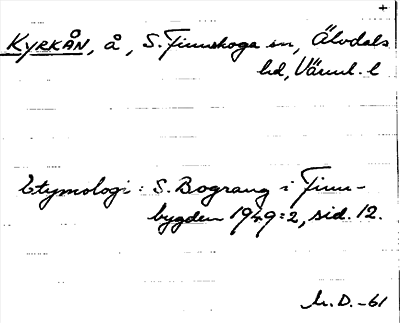 +
KYRKÅN, å, S. Finnskoga sn, Älvdals
hd, Värml. l
Etymologi: S. Bograng i Finn-
bygden 1949:2, sid. 12.
M.D. -61